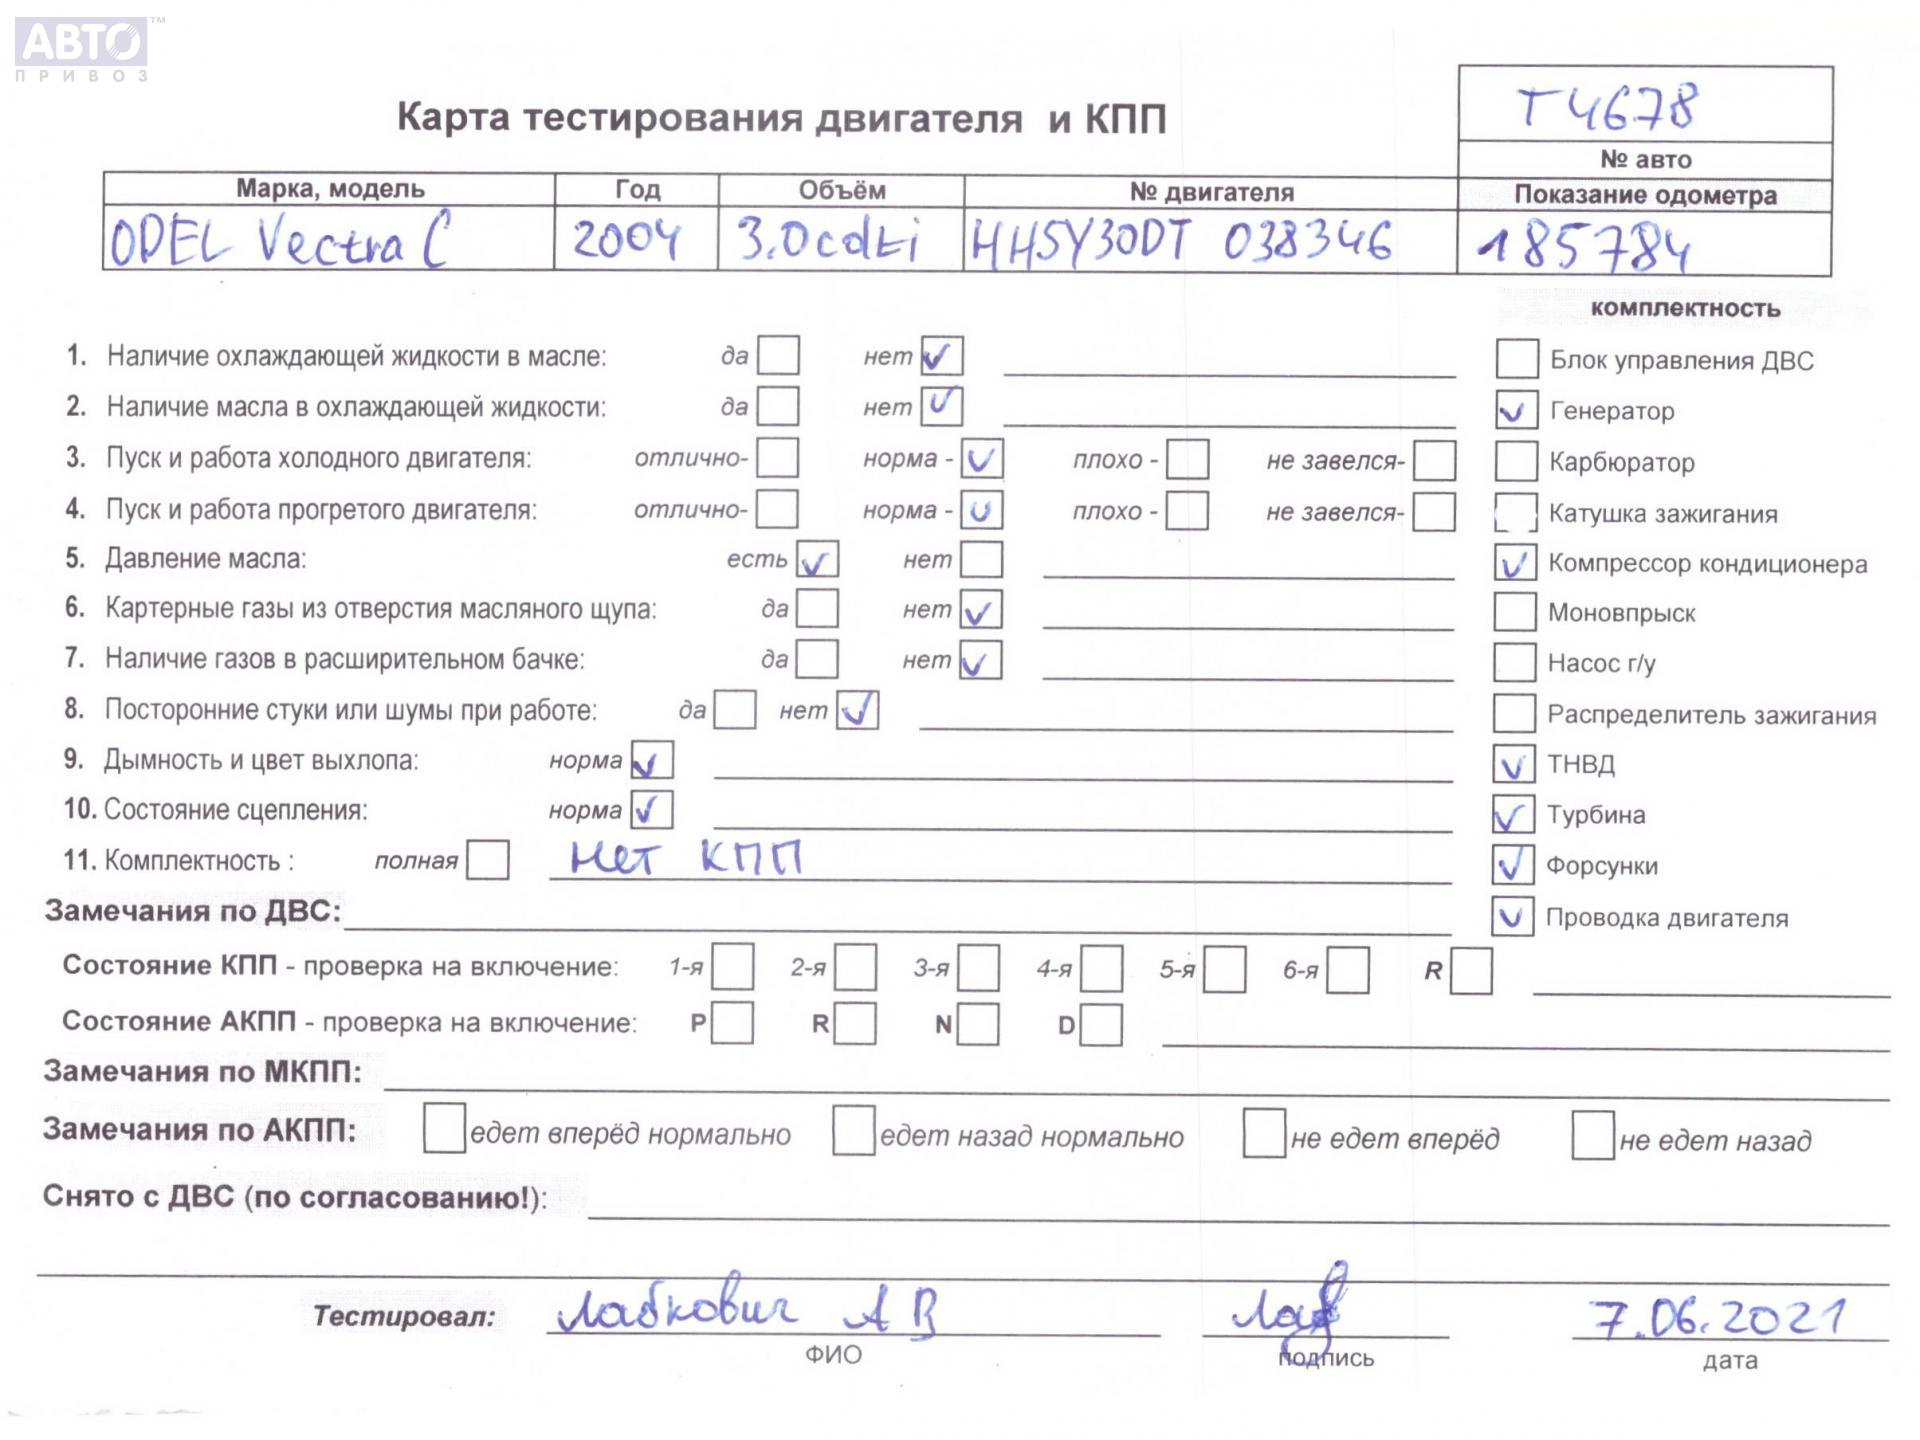 АВТО™
ПРИВОЗ
Карта тестирования двигателя и КПП
T4678
№ авто
Марка, модель Год Объём № двигателя Показание одометра
OPEL Vectra C 2004 3.0cdti HH5Y30DT 038346 185784
комплектность
1. Наличие охлаждающей жидкости в масле: да нет ✓ Блок управления ДВС
2. Наличие масла в охлаждающей жидкости: да нет ✓ ✓ Генератор
3. Пуск и работа холодного двигателя: отлично- норма - ✓ плохо - не завелся- Карбюратор
4. Пуск и работа прогретого двигателя: отлично- норма - ✓ плохо - не завелся- Катушка зажигания
5. Давление масла: есть ✓ нет ✓ Компрессор кондиционера
6. Картерные газы из отверстия масляного щупа: да нет ✓ Моновпрыск
7. Наличие газов в расширительном бачке: да нет ✓ Насос г/у
8. Посторонние стуки или шумы при работе: да нет ✓ Распределитель зажигания
9. Дымность и цвет выхлопа: норма ✓ ✓ ТНВД
10. Состояние сцепления: норма ✓ ✓ Турбина
11. Комплектность : полная Нет КПП ✓ Форсунки
Замечания по ДВС: ✓ Проводка двигателя
Состояние КПП - проверка на включение: 1-я 2-я 3-я 4-я 5-я 6-я R
Состояние АКПП - проверка на включение: P R N D
Замечания по МКПП:
Замечания по АКПП: едет вперёд нормально едет назад нормально не едет вперёд не едет назад
Снято с ДВС (по согласованию!):
Тестировал: Лабкович А В Лаб 7.06.2021
ФИО подпись дата